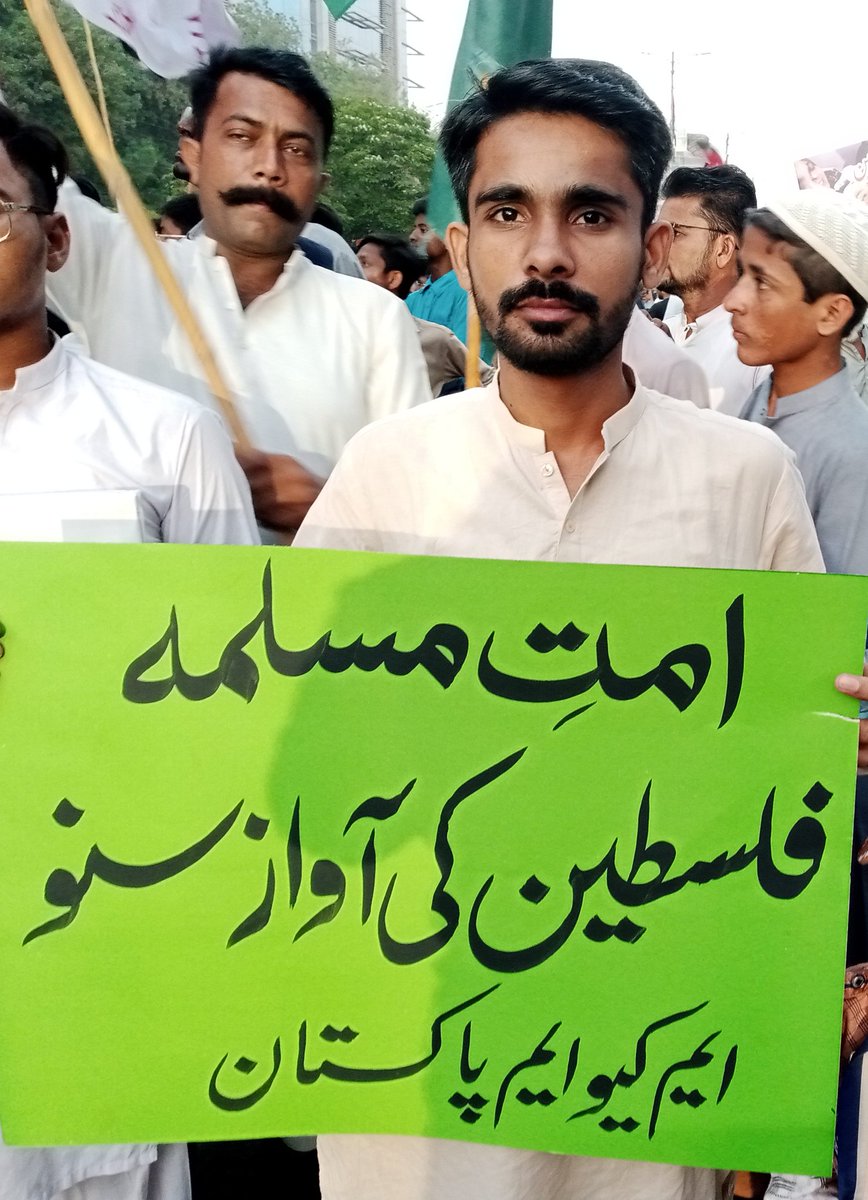 امتِ مسلمہ
فلسطین کی آواز سنو
ایم کیو ایم پاکستان